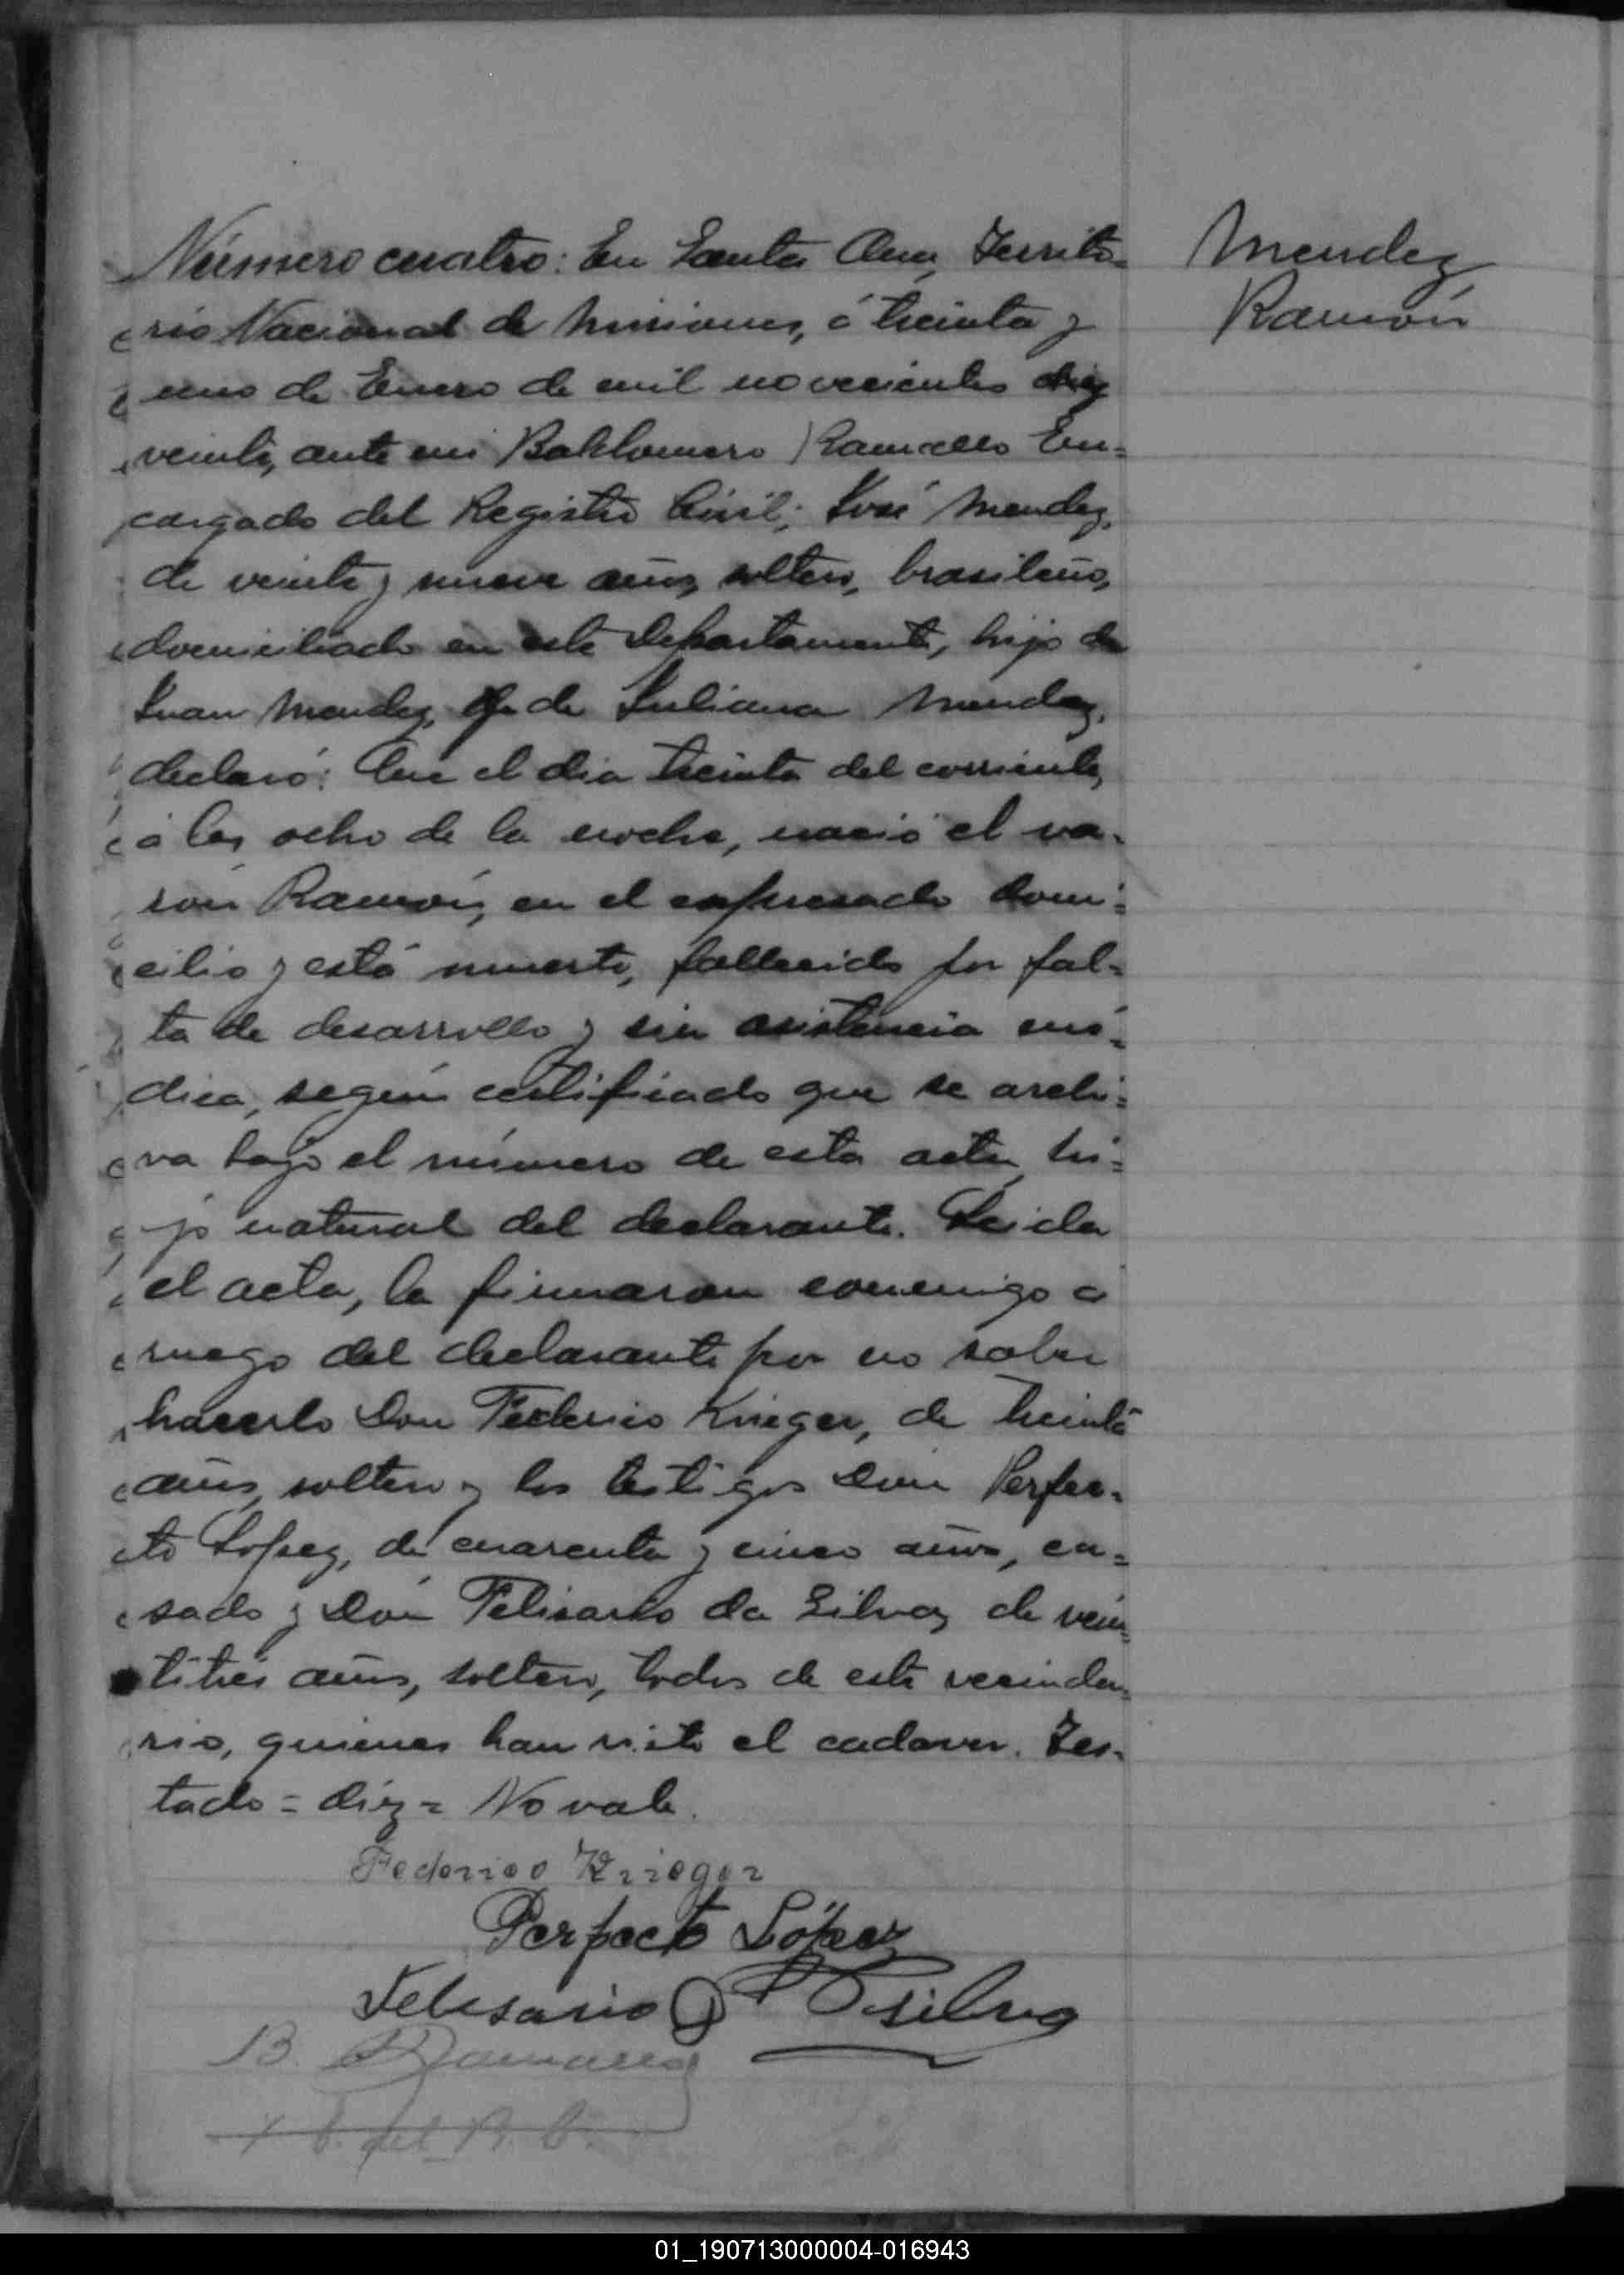 Mendez,
Ramón
Número cuatro: En Santa Ana, Territo-
rio Nacional de Misiones, á treinta y
uno de Enero de mil novecientos diez
veinte, ante mi Baldomero Ramallo En-
cargado del Registro Civil; José Mendez,
de veinte y nueve años, soltero, brasileño,
domiciliado en este Departamento, hijo de
Juan Mendez, y de Juliana Mendez,
declaró: Que el dia treinta del corriente,
á las ocho de la noche, nació el va-
rón Ramón, en el expresado domi-
cilio y está muerto, fallecido por fal-
ta de desarrollo y sin asistencia mé-
dica, según certificado que se archi-
va bajo el número de esta acta, hi-
jo natural del declarante. Leida
el acta, la firmaron conmigo a
ruego del declarante por no saber
hacerlo Don Federico Krieger, de treinta
años, soltero y los testigos Don Perfec-
to Lopez, de cuarenta y cinco años, ca-
sado y Don Felisario da Silva, de vein-
titrés años, soltero, todos de este vecinda-
rio, quienes han visto el cadaver. Tes-
tado = diez = No vale.
Federico Krieger
Perfecto López
Felisario Silva
B. Ramallo
E. del R. C.
01_190713000004-016943